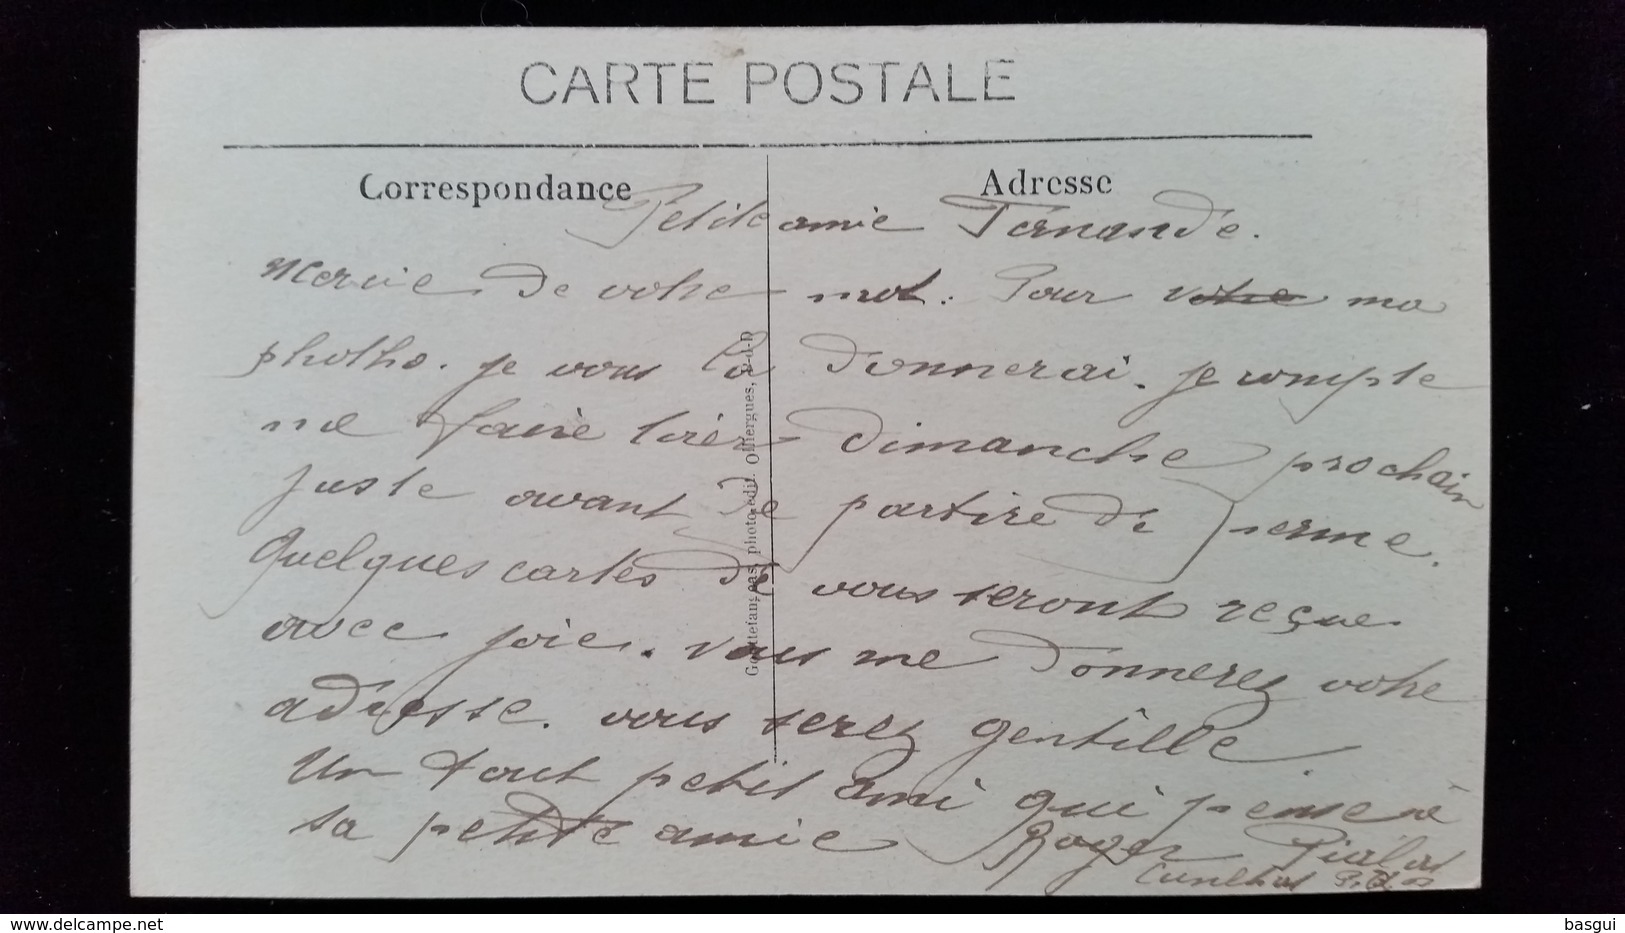 CARTE POSTALE
Correspondance
Adresse
Petite amie Fernande.
Mercie de votre mot. Pour votre ma
photho. je vous la donnerai. je compte
me faire tirer dimanche prochain
juste avant de partire de
Quelques cartes de vous seront reçue
avec joie. vous me donnerez votre
adresse. vous serez gentille
Un tout petit ami qui pense à
sa petite amie Roger Pialat
Cunlhat P. de D
photo-édit. Olliergues, P-d-D
basgui